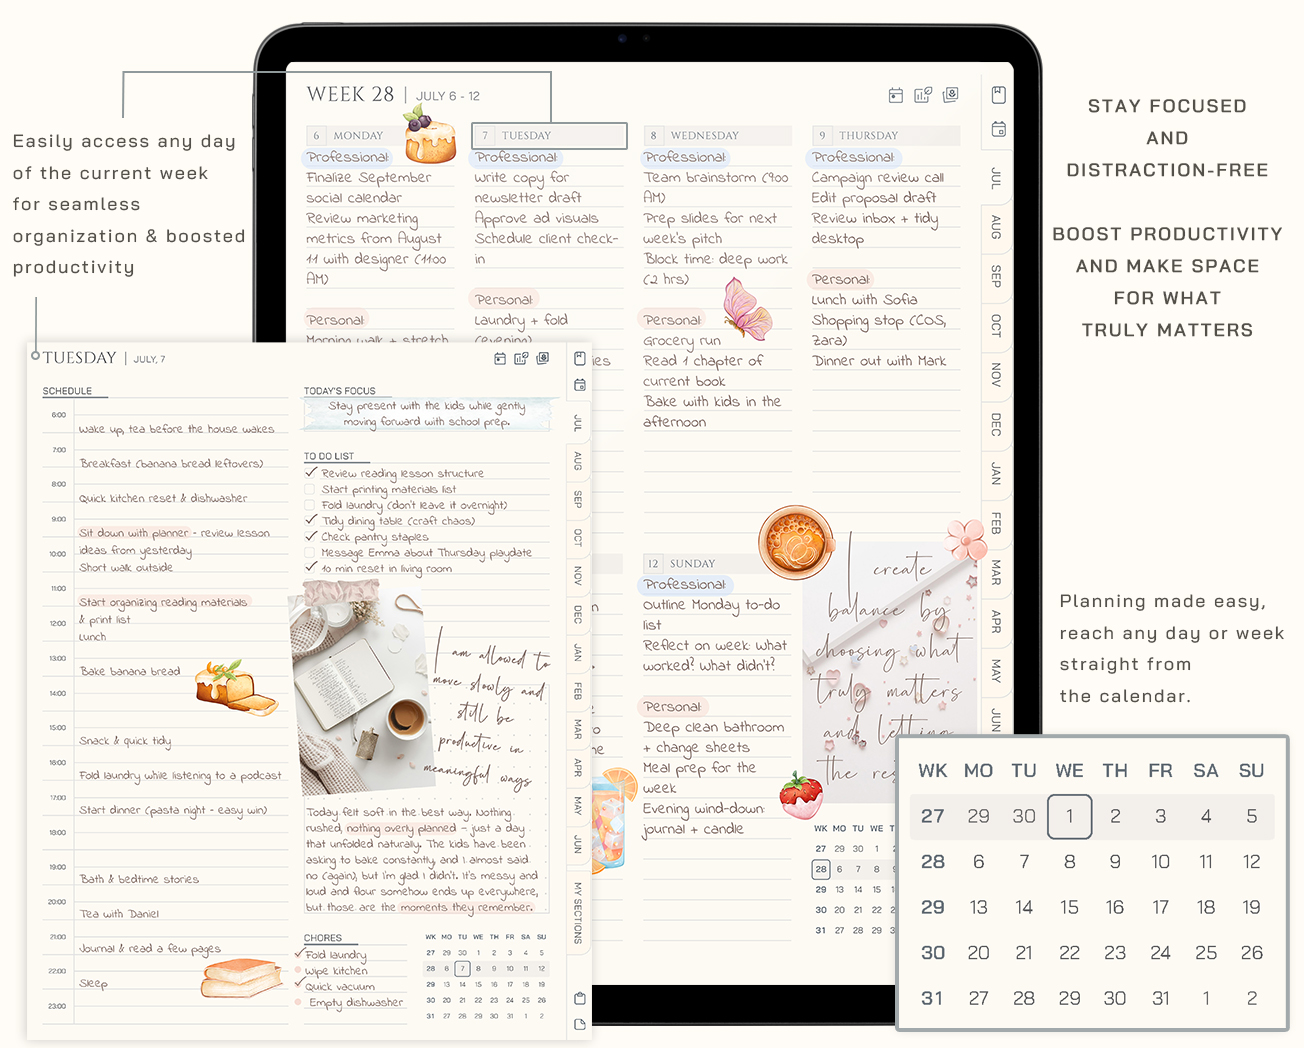 Easily access any day
of the current week
for seamless
organization & boosted
productivity
WEEK 28 | JULY 6 - 12
6 MONDAY
Professional:
Finalize September
social calendar
Review marketing
metrics from August
1:1 with designer (11:00
AM)
Personal:
Morning walk + stretch
7 TUESDAY
Professional:
Write copy for
newsletter draft
Approve ad visuals
Schedule client check-
in
Personal:
Laundry + fold
(evening)
8 WEDNESDAY
Professional:
Team brainstorm (9:00
AM)
Prep slides for next
week's pitch
Block time: deep work
(2 hrs)
Personal:
Grocery run
Read 1 chapter of
current book
Bake with kids in the
afternoon
9 THURSDAY
Professional:
Campaign review call
Edit proposal draft
Review inbox + tidy
desktop
Personal:
Lunch with Sofia
Shopping stop (COS,
Zara)
Dinner out with Mark
12 SUNDAY
Professional:
Outline Monday to-do
list
Reflect on week: What
worked? What didn't?
Personal:
Deep clean bathroom
+ change sheets
Meal prep for the
week
Evening wind-down:
journal + candle
I create
balance by
choosing what
truly matters
and letting
the
WK MO TU WE
27 29 30 1
28 6 7 8
29 13 14 15
30 20 21 22
31 27 28 29
JUL
AUG
SEP
OCT
NOV
DEC
JAN
FEB
MAR
APR
MAY
JUN
TUESDAY | JULY, 7
SCHEDULE
6:00
Wake up, tea before the house wakes
7:00
Breakfast (banana bread leftovers)
8:00
Quick kitchen reset & dishwasher
9:00
Sit down with planner - review lesson
10:00 ideas from yesterday
Short walk outside
11:00
Start organizing reading materials
& print list
12:00
Lunch
13:00
Bake banana bread
14:00
15:00
Snack & quick tidy
16:00
Fold laundry while listening to a podcast
17:00
Start dinner (pasta night - easy win)
18:00
19:00
Bath & bedtime stories
20:00
Tea with Daniel
21:00
Journal & read a few pages
22:00
Sleep
23:00
TODAY'S FOCUS
Stay present with the kids while gently
moving forward with school prep.
TO DO LIST
Review reading lesson structure
Start printing materials list
Fold laundry (don't leave it overnight)
Tidy dining table (craft chaos)
Check pantry staples
Message Emma about Thursday playdate
10 min reset in living room
I am allowed to
move slowly and
still be
productive in
meaningful ways
Today felt soft in the best way. Nothing
rushed, nothing overly planned - just a day
that unfolded naturally. The kids have been
asking to bake constantly, and I almost said
no (again), but I'm glad I didn't. It's messy and
loud and flour somehow ends up everywhere,
but those are the moments they remember.
CHORES
Fold laundry
Wipe kitchen
Quick vacuum
Empty dishwasher
WK MO TU WE TH FR SA SU
27 29 30 1 2 3 4 5
28 6 7 8 9 10 11 12
29 13 14 15 16 17 18 19
30 20 21 22 23 24 25 26
31 27 28 29 30 31 1 2
JUL
AUG
SEP
OCT
NOV
DEC
JAN
FEB
MAR
APR
MAY
JUN
MY SECTIONS
STAY FOCUSED
AND
DISTRACTION-FREE
BOOST PRODUCTIVITY
AND MAKE SPACE
FOR WHAT
TRULY MATTERS
Planning made easy,
reach any day or week
straight from
the calendar.
WK MO TU WE TH FR SA SU
27 29 30 1 2 3 4 5
28 6 7 8 9 10 11 12
29 13 14 15 16 17 18 19
30 20 21 22 23 24 25 26
31 27 28 29 30 31 1 2